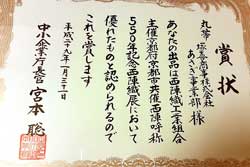 賞状
丸帯
塚喜商事株式会社
あさぎ事業部 様
あなたの出品は西陣織工業組合
主催京都府京都市共催西陣呼称
550年記念西陣織展において
優れたものと認められるので
これを賞します
平成二十九年一月三十一日
中小企業庁長官 宮本 聡